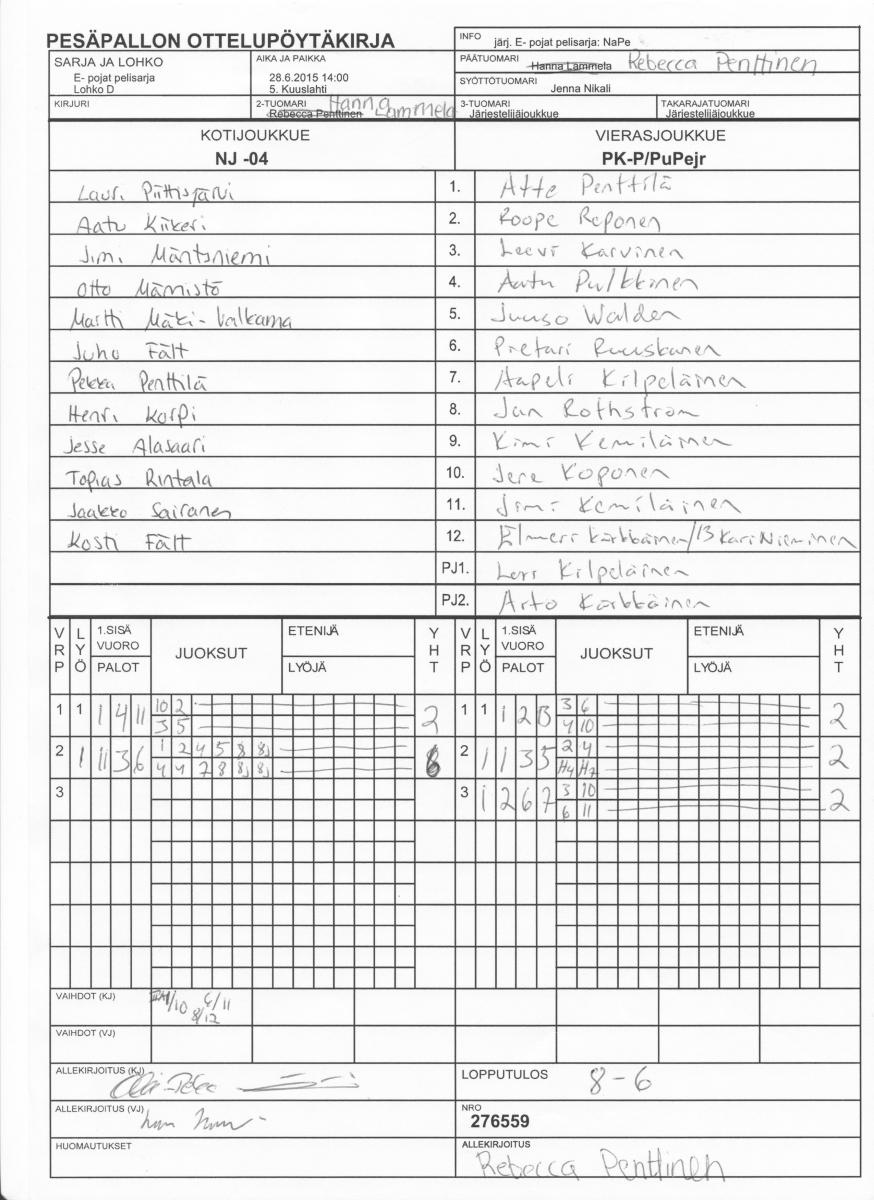 PESÄPALLON OTTELUPÖYTÄKIRJA
INFO järj. E- pojat pelisarja: NaPe
SARJA JA LOHKO
E- pojat pelisarja
Lohko D
AIKA JA PAIKKA
28.6.2015 14:00
5. Kuuslahti
PÄÄTUOMARI Hanna Lammela Rebecca Penttinen
SYÖTTÖTUOMARI
Jenna Nikali
KIRJURI
2-TUOMARI Hanna Lammela
Rebecca Penttinen
3-TUOMARI
Järjestelijäjoukkue
TAKARAJATUOMARI
Järjestelijäjoukkue
KOTIJOUKKUE
NJ -04
VIERASJOUKKUE
PK-P/PuPejr
Lauri Piittisjärvi 1. Atte Penttilä
Aatu Kiikeri 2. Roope Reponen
Jimi Mäntsniemi 3. Leevi Karvinen
Otto Mämistö 4. Aatu Pulkkinen
Martti Mäki-Valkama 5. Juuso Walden
Juho Fält 6. Pretari Ruuskanen
Pekka Penttilä 7. Aapeli Kilpeläinen
Henri Korpi 8. Jan Rothstrom
Jesse Alasaari 9. Kimi Kemiläinen
Topias Rintala 10. Jere Koponen
Jaakko Sairanen 11. Jimi Kemiläinen
Kosti Fält 12. Elmeri Kärkkäinen/13 Kari Nieminen
PJ1. Kilpeläinen
PJ2. Arto Kärkkäinen
VRP LYÖ 1.SISÄ VUORO PALOT JUOKSUT ETENIJÄ LYÖJÄ YHT VRP LYÖ 1.SISÄ VUORO PALOT JUOKSUT ETENIJÄ LYÖJÄ YHT
1 1 1 4 11 10 2 2 1 1 1 2 13 3 6 2
3 5 4 10
2 1 11 3 6 1 2 4 5 8 8 6 2 1 1 3 5 2 4 2
4 4 7 8 8 8 H4 H7
3 3 1 2 6 7 3 10 2
6 11
VAIHDOT (KJ) /10 6/11
8/12
VAIHDOT (VJ)
ALLEKIRJOITUS (KJ)
LOPPUTULOS 8-6
ALLEKIRJOITUS (VJ)
NRO
276559
HUOMAUTUKSET
ALLEKIRJOITUS
Rebecca Penttinen